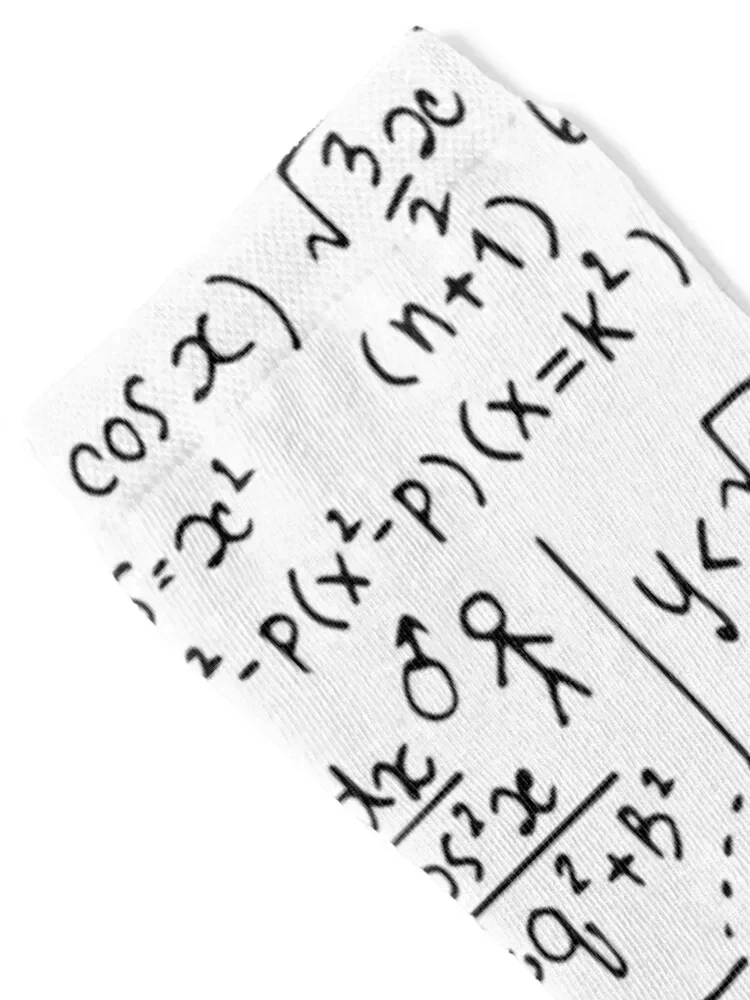 cos x) √3/2 x
(n+1)
= x²
²-P(x²-P)(x=K²)
y<
x
os² x
q²+B²